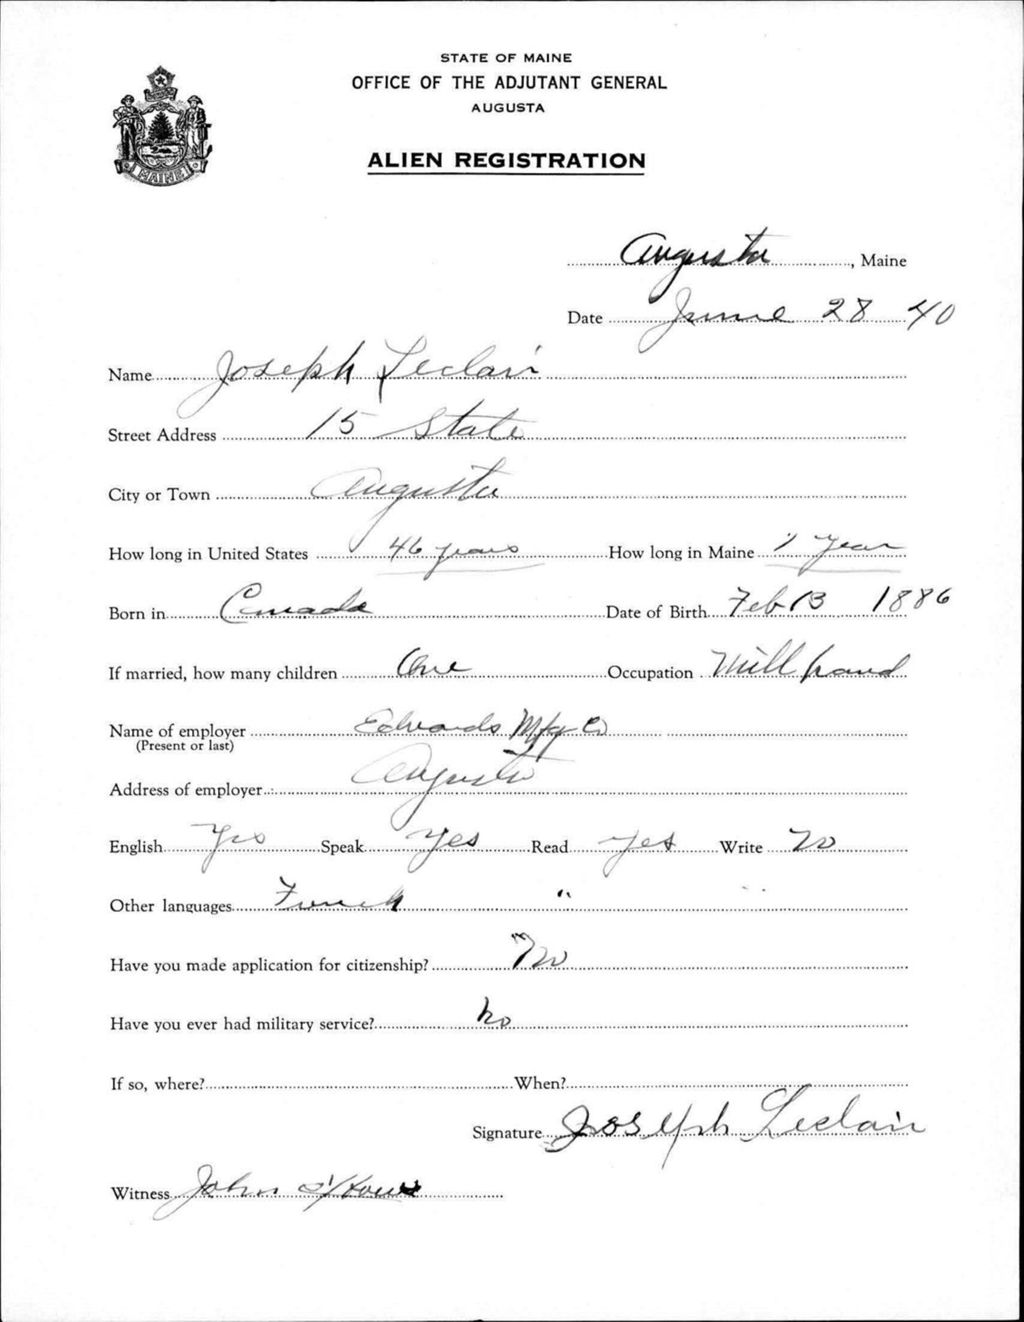 STATE OF MAINE
OFFICE OF THE ADJUTANT GENERAL
AUGUSTA
ALIEN REGISTRATION
MAINE
Augusta, Maine
Date June 28 40
Name Joseph Leclair
Street Address 15 State
City or Town Augusta
How long in United States 46 years How long in Maine 1 year
Born in Canada Date of Birth Feb 13 1886
If married, how many children One Occupation Mill hand
Name of employer Edwards Mfg Co
(Present or last)
Address of employer Augusta
English Yes Speak Yes Read Yes Write No
Other languages French " "
Have you made application for citizenship? No
Have you ever had military service? No
If so, where? When?
Signature Joseph Leclair
Witness John